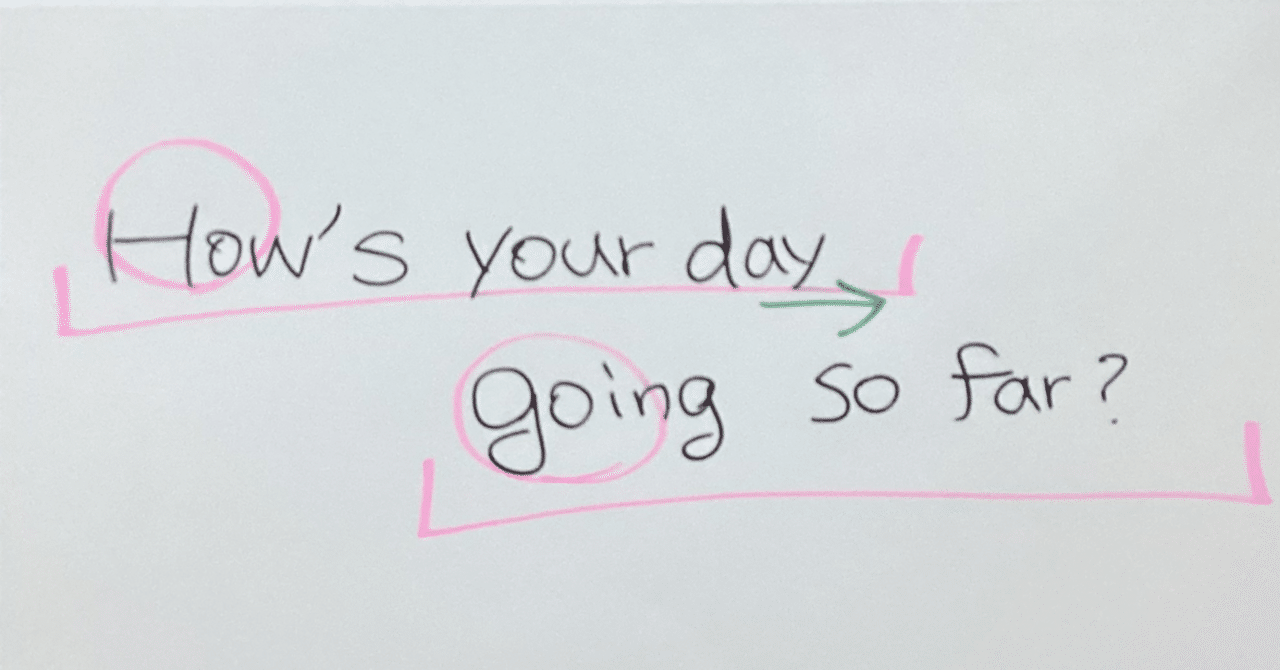 How's your day
going so far?